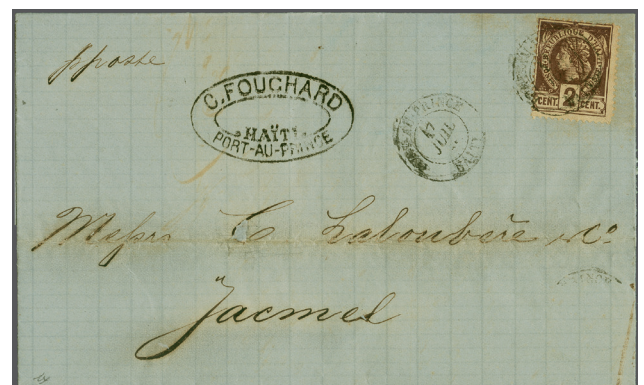 pposte
C. FOUCHARD
HAÏTI
PORT-AU-PRINCE
17
JUIL
HAITI
RÉPUBLIQUE
CENT. 2 CENT.
Messrs C Laloubère & Co
Jacmel